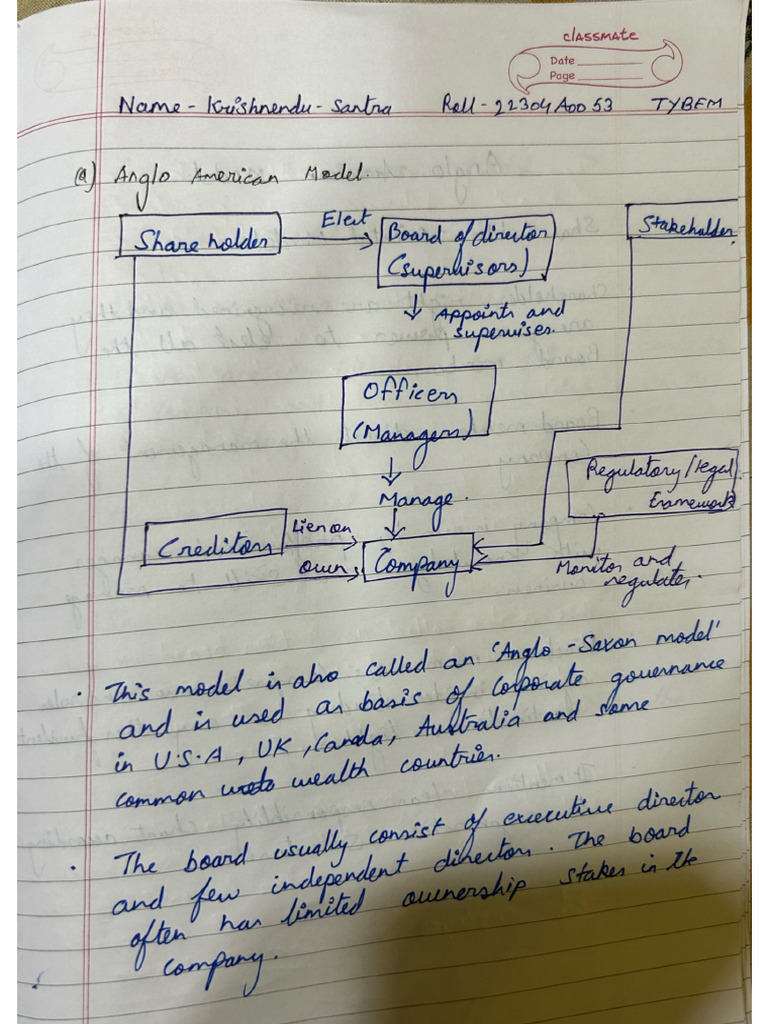 classmate
Date
Page
Name - Krishnendu - Santra Roll - 22304A0053 TYBFM
(a) Anglo American Model.
Share holder
Elect
Board of director
(supervisors)
Stakeholder
Appoints and
supervises.
Officers
(Managers)
Manage.
Regulatory/legal
framework
Creditors
Lien on
own
Company
Monitor and
regulates.
• This model is also called an 'Anglo - Saxon model'
and is used as basis of Corporate governance
in U.S.A, UK, Canada, Australia and some
common wealth countries.
• The board usually consist of executive director
and few independent directors. The board
often has limited ownership stakes in the
company.